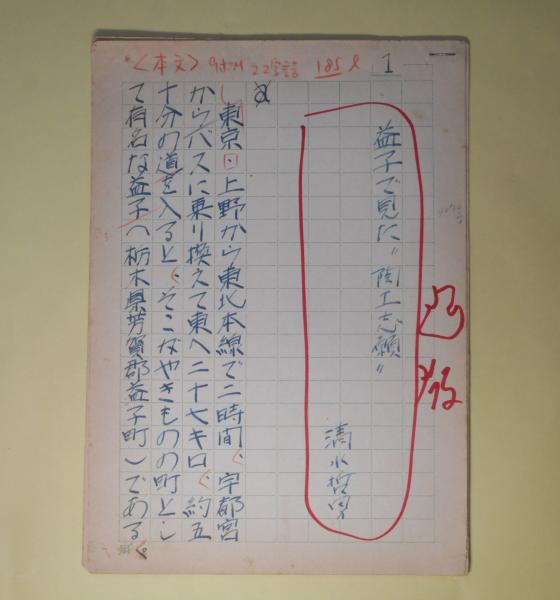 〈本文〉 9ポM 22字詰 185ℓ 1
益子で見た〝陶工志願〟
清水哲男
東京・上野から東北本線で二時間、宇都宮
からバスに乗り換えて東へ二十七キロ、約五
十分の道を入ると、そこがやきものの町とし
て有名な益子(栃木県芳賀郡益子町)である。